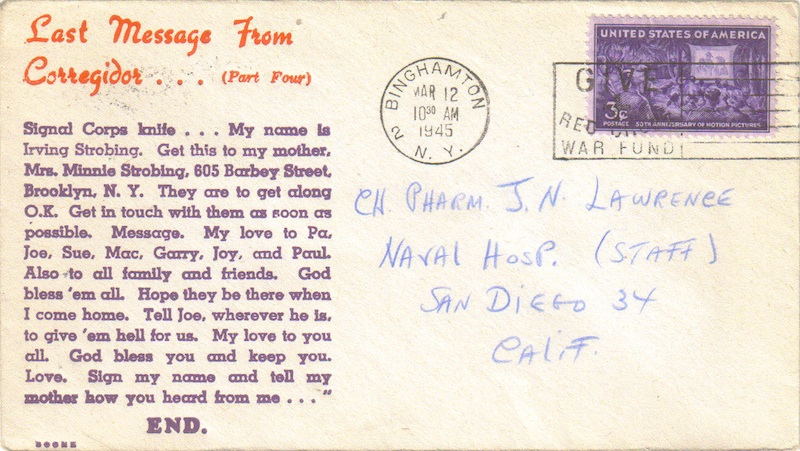 Last Message From
Corregidor . . . (Part Four)
Signal Corps knife . . . My name is
Irving Strobing. Get this to my mother,
Mrs. Minnie Strobing, 605 Barbey Street,
Brooklyn, N. Y. They are to get along
O.K. Get in touch with them as soon as
possible. Message. My love to Pa,
Joe, Sue, Mac, Garry, Joy, and Paul.
Also to all family and friends. God
bless 'em all. Hope they be there when
I come home. Tell Joe, wherever he is,
to give 'em hell for us. My love to you
all. God bless you and keep you.
Love. Sign my name and tell my
mother how you heard from me . . ."
END.
BINGHAMTON
MAR 12
10 30 AM
1945
2 N. Y.
GIVE
RED
WAR FUND
UNITED STATES OF AMERICA
3¢
POSTAGE 50TH ANNIVERSARY OF MOTION PICTURES
CH. PHARM. J. N. LAWRENCE
NAVAL HOSP. (STAFF)
SAN DIEGO 34
CALIF.